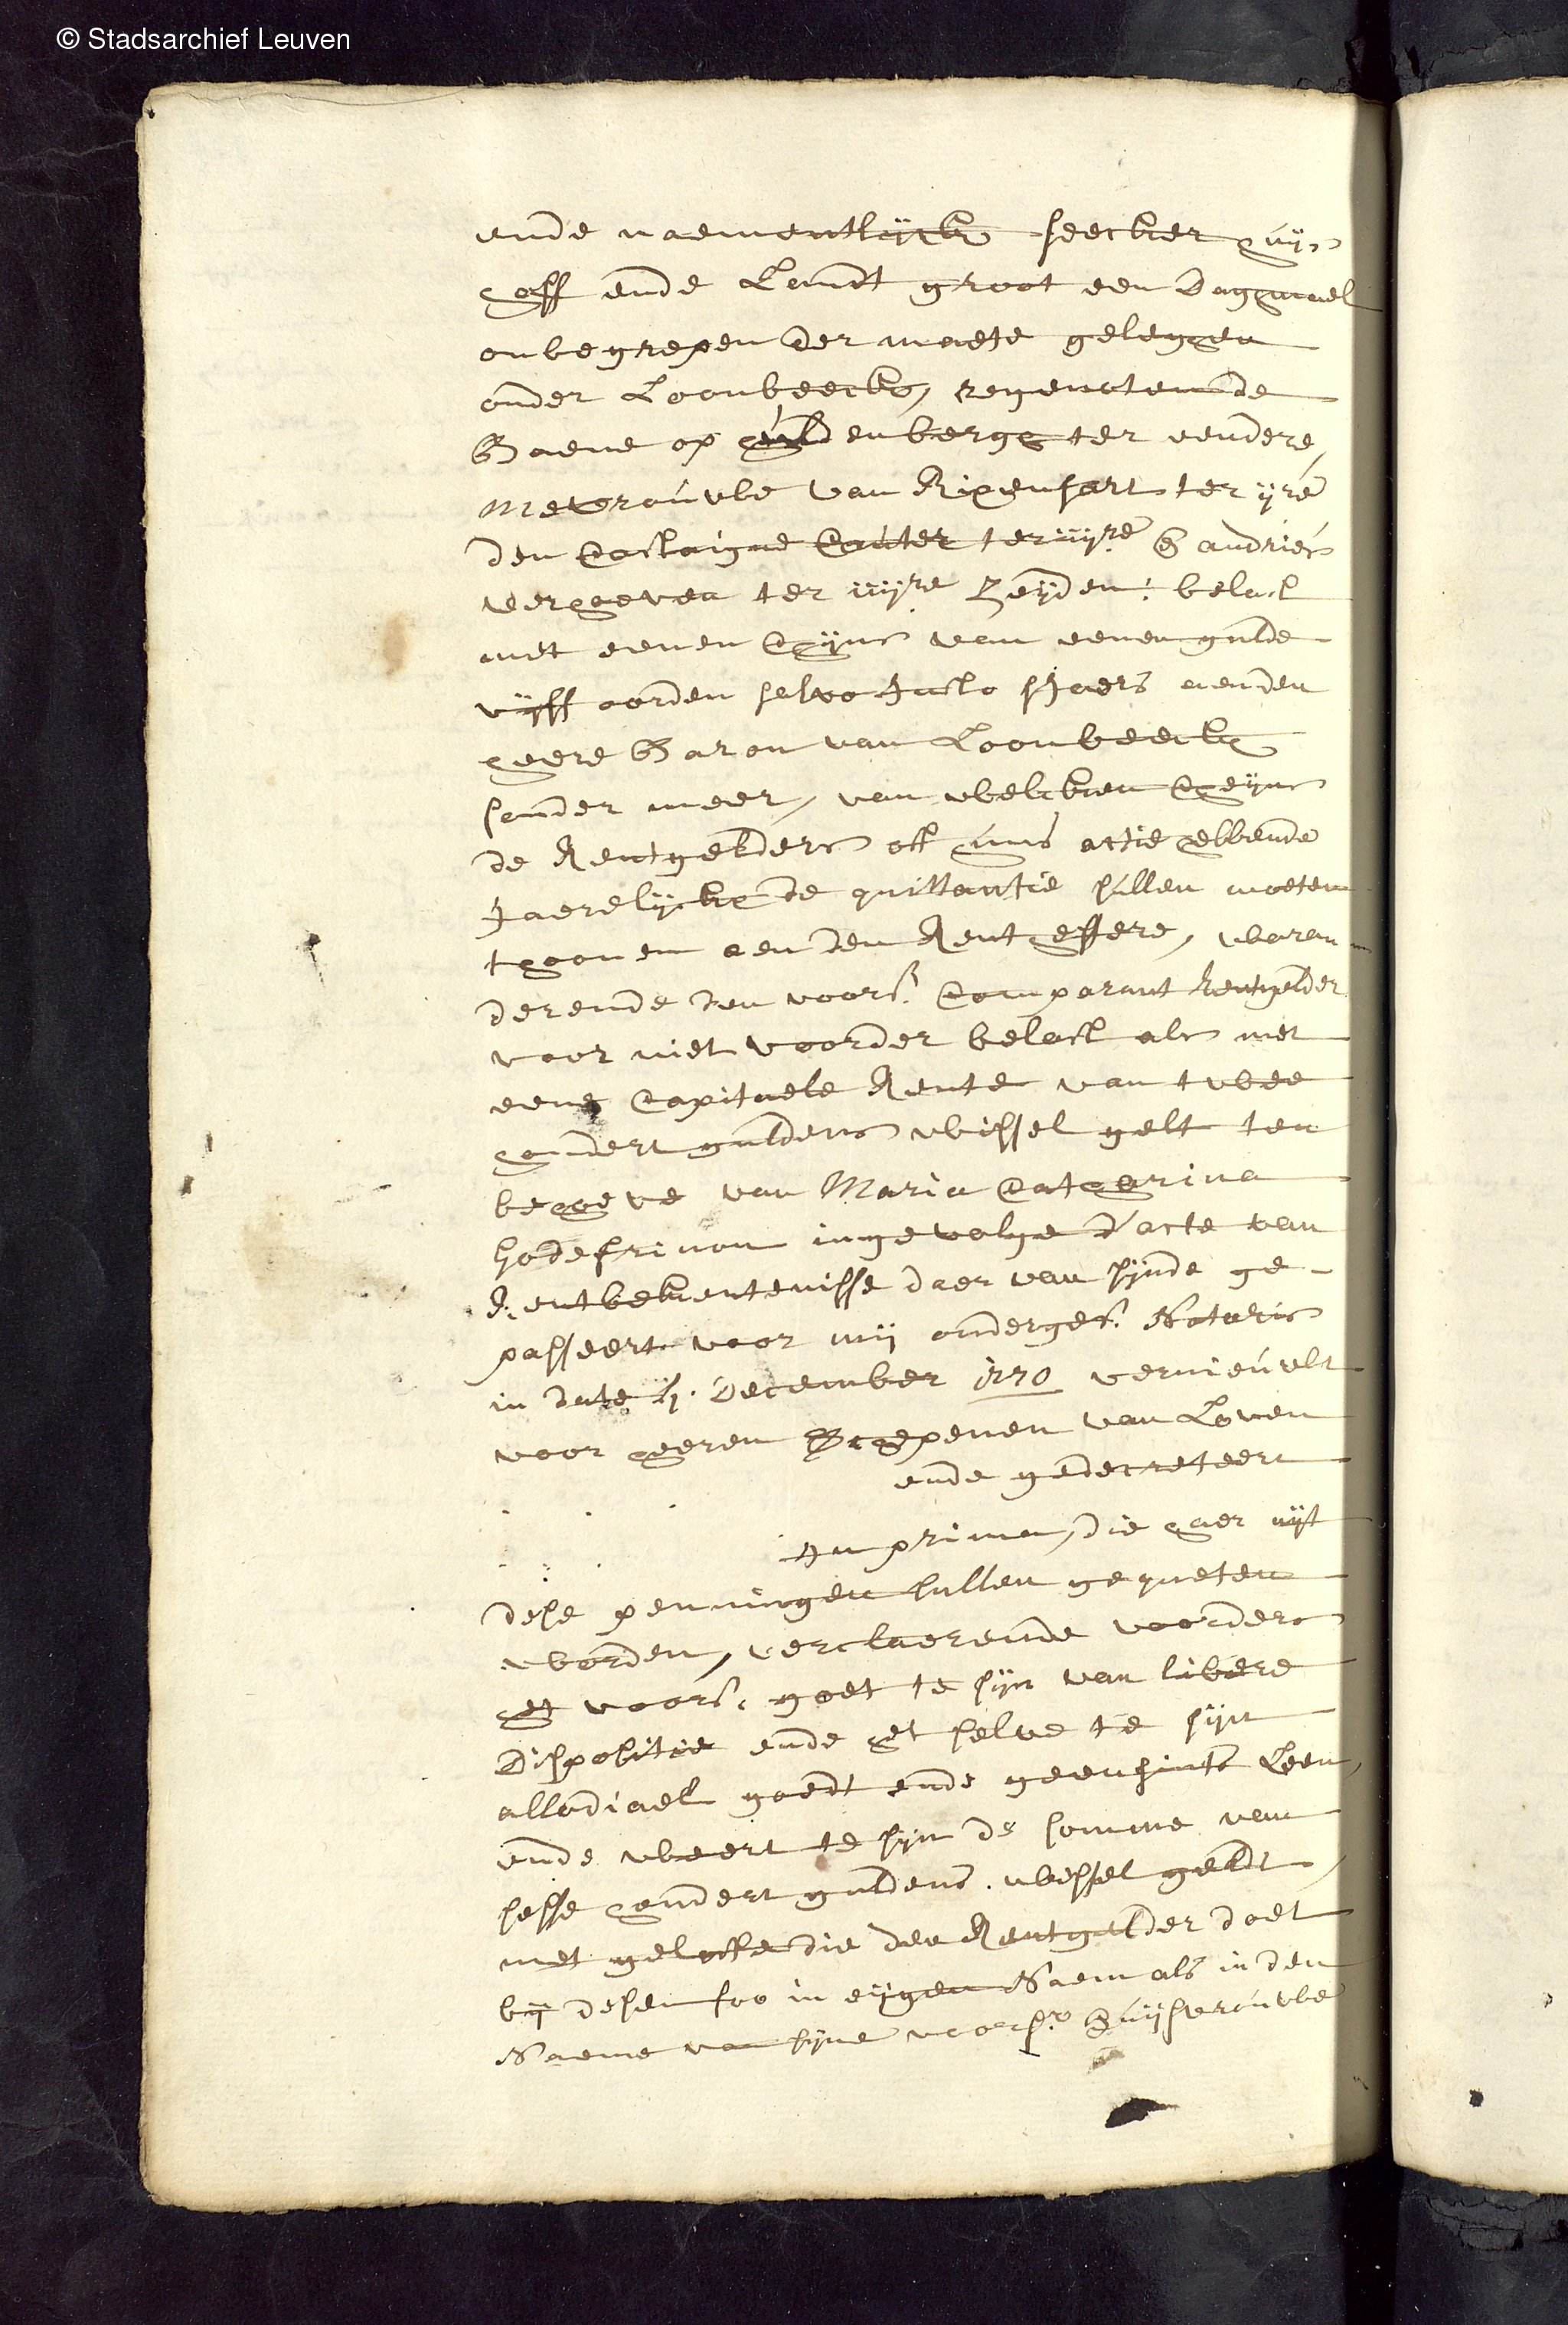 © Stadsarchief Leuven
ende naementlijck seecker huys
hoff ende Landt groot een Daghmael
onbegrepen der maete gelegen
onder Loonbeeck, regenoten de
Baene op huldenberghe ter eendere,
Mevrouwe van Rixensart ter ije
den ter iije andries
Vergoeven ter iiije Zeijden: belast
met eenen Chijns van eenen gulde
vijff oorden salvo Justo sjaers aen den
heere Baron van Loonbeeck
sonder meer, van welcken Cheijns
de Rentgelders oft huns actie hebbende
Jaerelijckx de quittantie sullen moeten
thoonen aen den Rent heffere, waran-
derende den voors. Comparant Rentgelder
voor niet voorder belast als met
eene Capitaele Rente van twee
hondert guldens wissel gelt ten
behoeve van Maria Catharina
hodefrinon ingevolge d'acte van
Rentbekentenisse daer van sijnde ge-
passeert voor mij onderges. Notaris
in date December 1770 vernieuwt
voor heeren Schepenen van Loven
ende gedecreteert
In prima, die hier uijt
dese penningen sullen gequeten
worden, verclaerende voorders
het voors. goet te sijn van libere
Dispositie ende het selve te sijn
allodiael goedt ende geensints Leen,
ende weert te sijn de somme van
sesse hondert guldens wissel geldt,
met gelofte die den Rentgelder doet
bij desen soo in eijgen Naem als in den
Naeme van sijne voors. huijsvrouwe